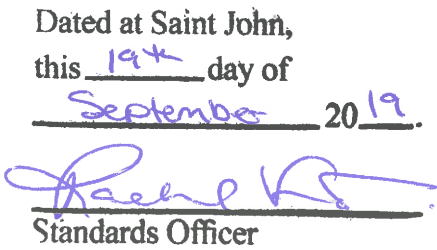 Dated at Saint John,
this 19th day of
September 2019.
Rachel
Standards Officer